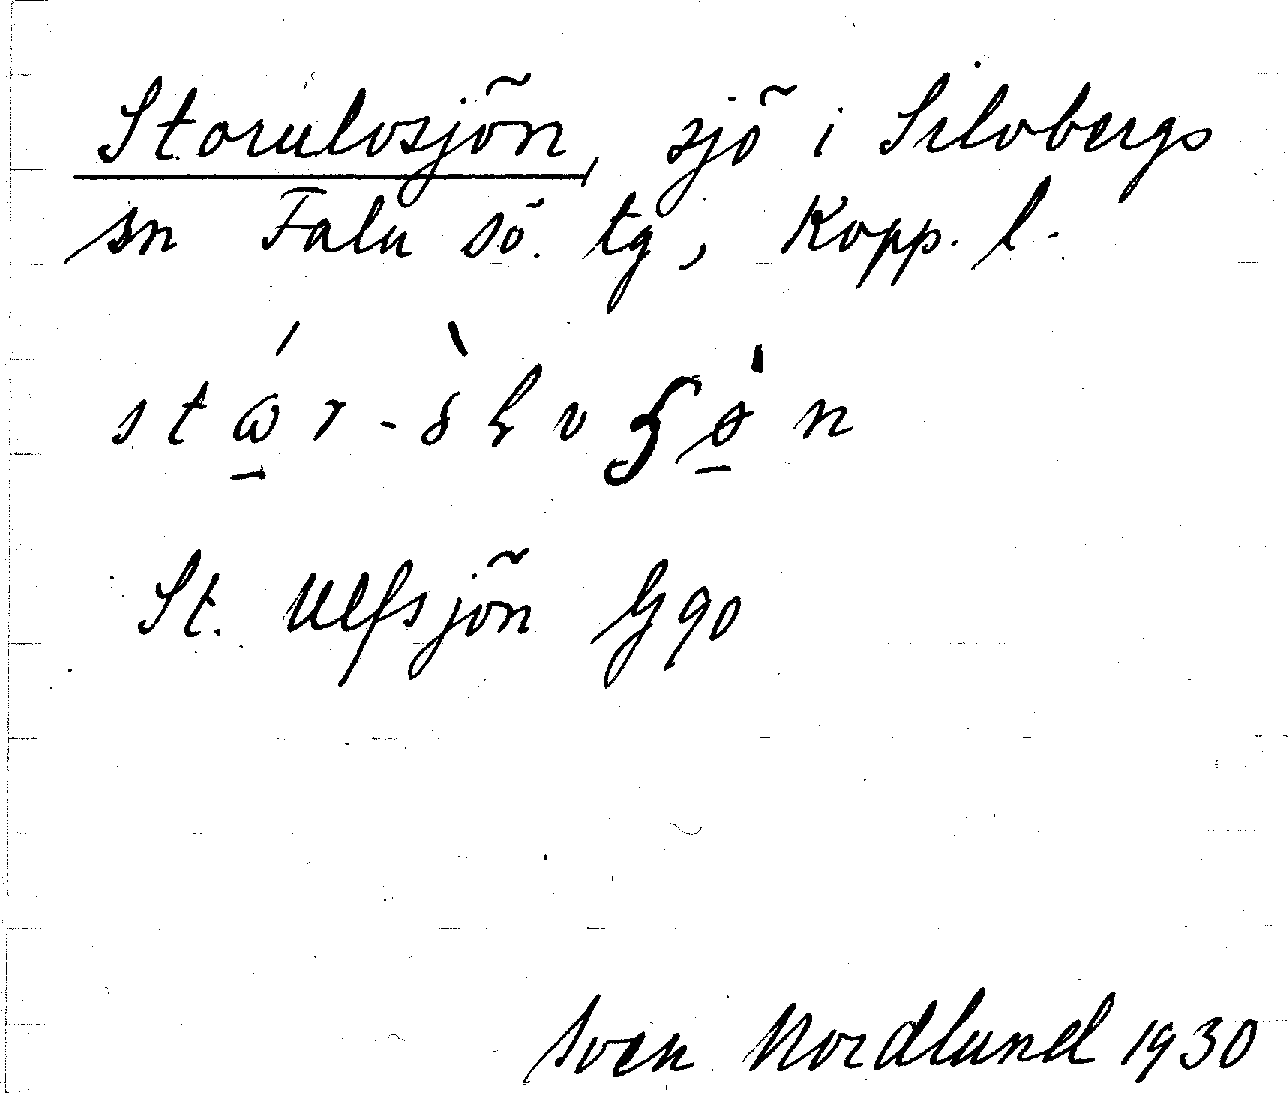 Storulvsjön, sjö i Silvbergs
sn Falu sö. tg, Kopp. l.
St. Ulfsjön G 90
Sven Nordlund 1930